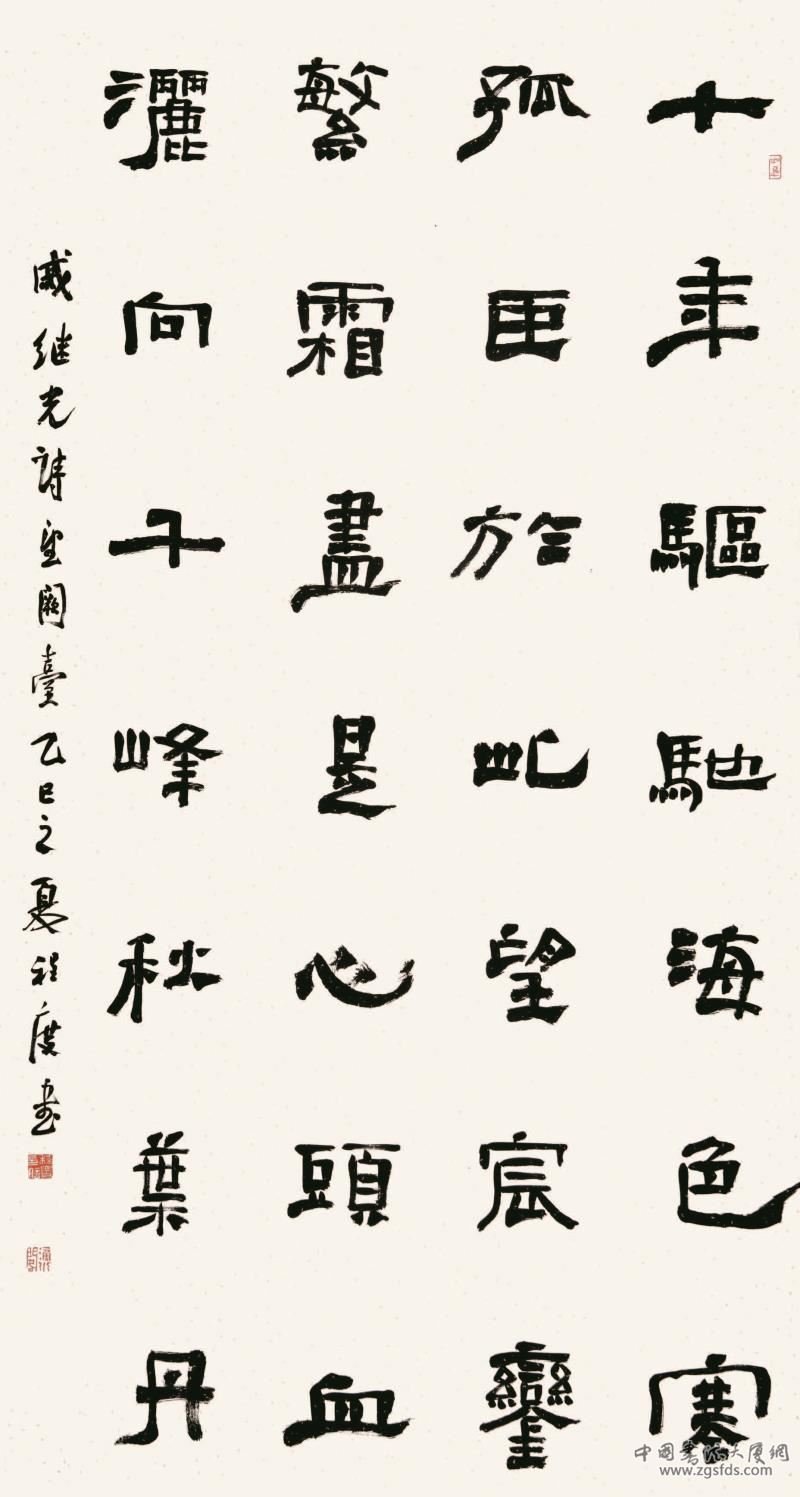 十年驅馳海色寒
孤臣於此望宸鑾
繁霜盡是心頭血
灑向千峰秋葉丹
戚继光詩望闕臺乙巳之夏程度書
中國書法大厦網
www.zgsfds.com